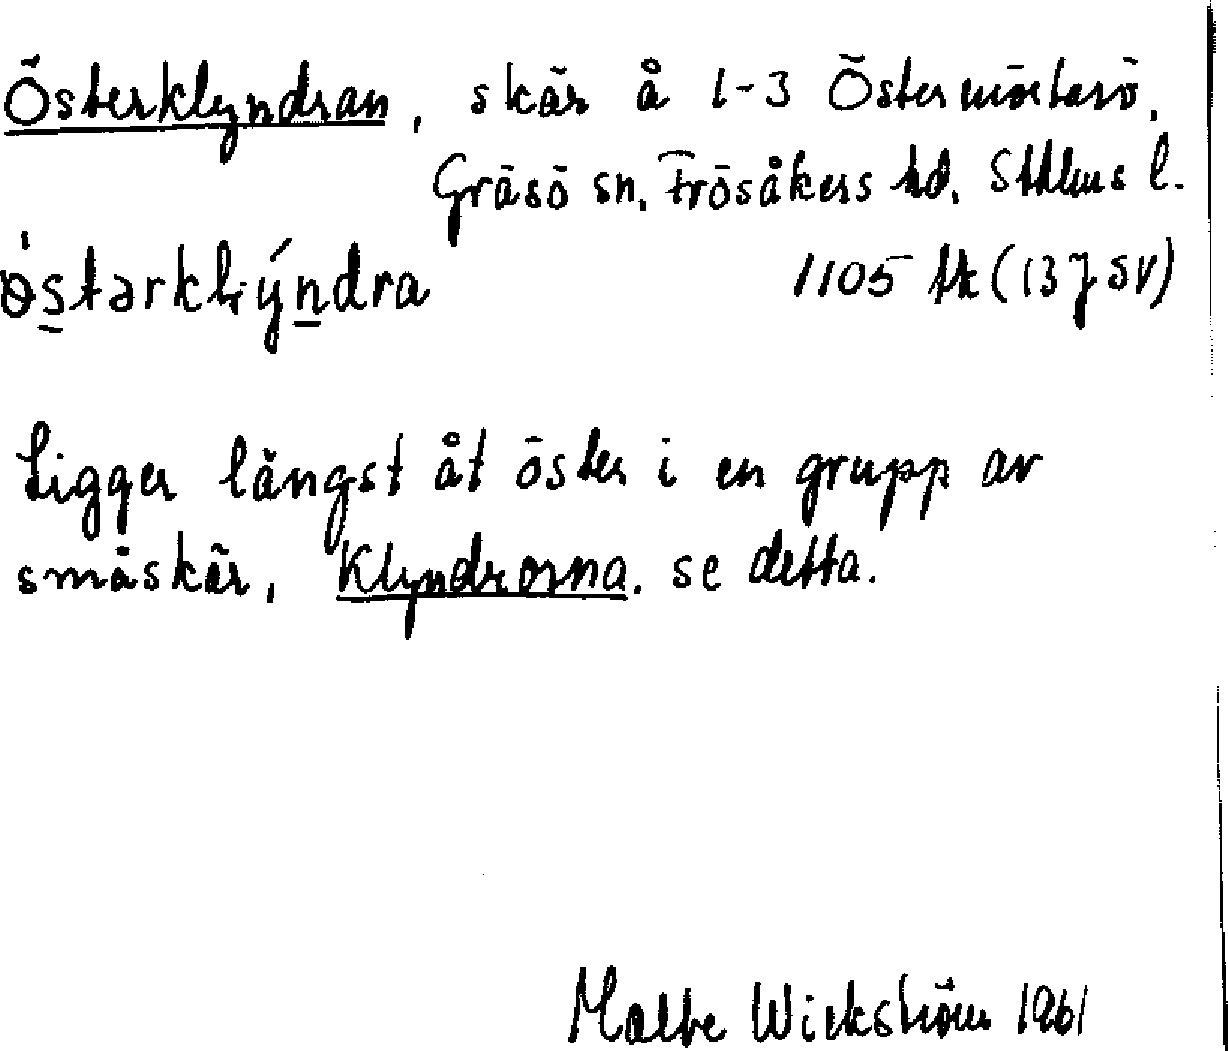 Österklyndran, skär å 1-3 Östermörtarö,
Gräsö sn, Frösåkers hd, Sthlms l.
östarklýndra 1105 tk (13J SV)
Ligger längst åt öster i en grupp av
småskär, Klyndrorna. se detta.
Malte Wickström 1961